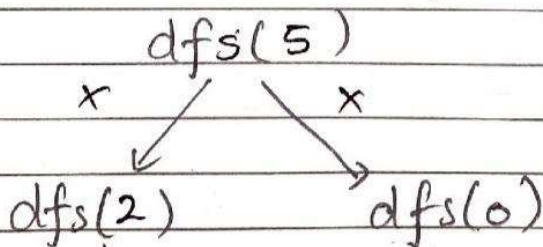 dfs(5)
x x
dfs(2) dfs(0)